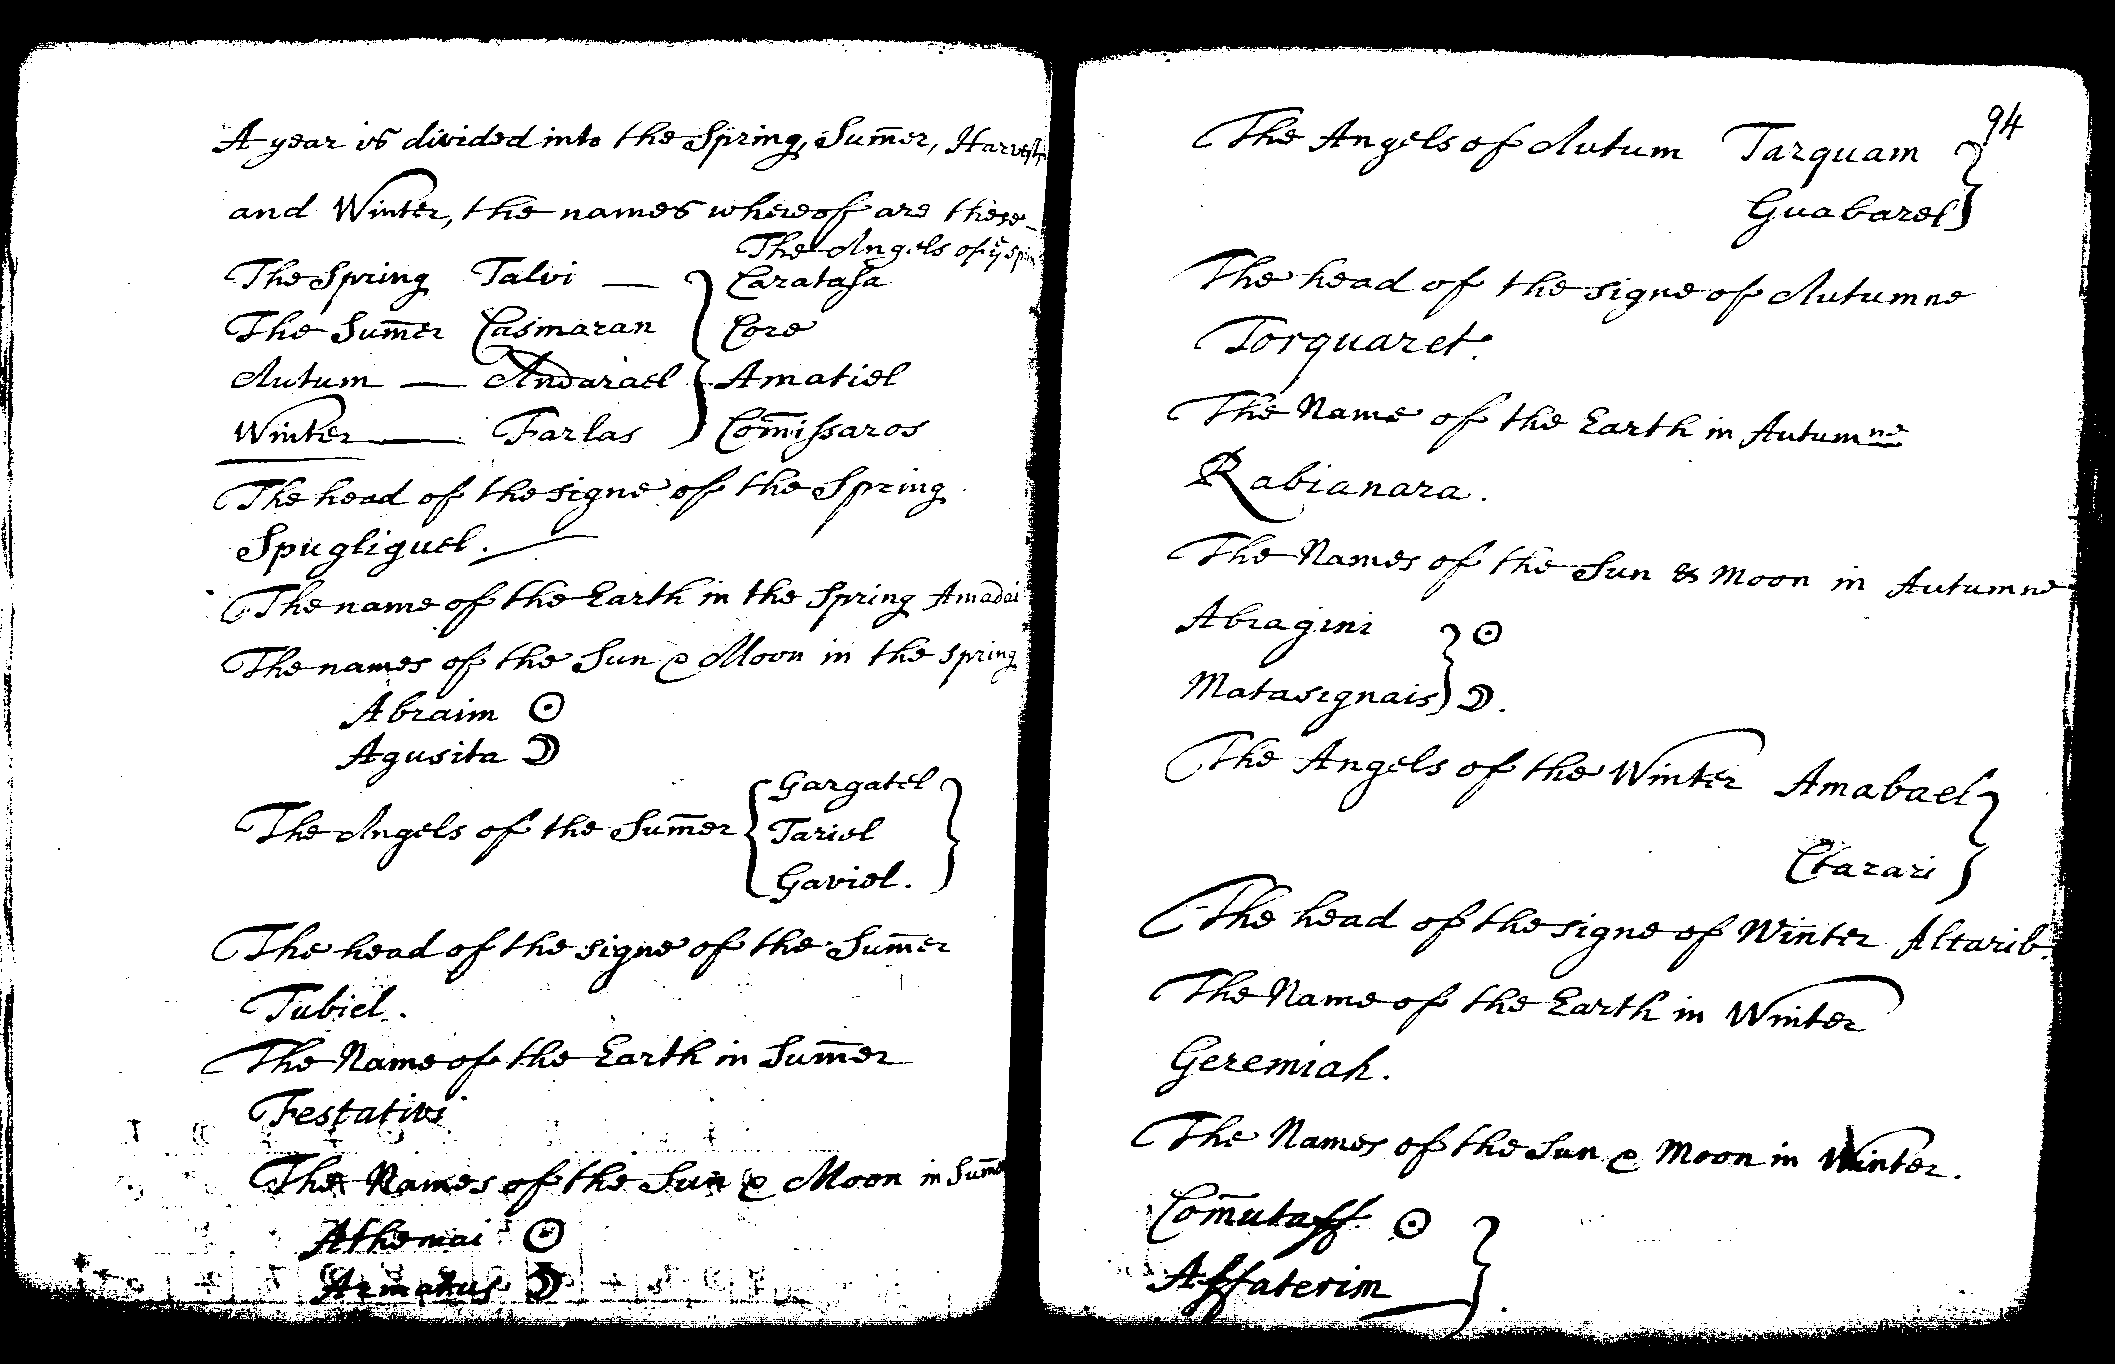 A year is divided into the Spring, Sum̄er, Harvest
and Winter, the names whereof are these
The Angels of yᵉ Spin
The Spring Talvi — Caratasa
The Sum̄er Casmaran Core
Autum — Andarael Amatiel
Winter — Farlas Com̄issaros
The head of the signe of the Spring
Spugliguel.
The name of the Earth in the Spring Amadai
The names of the Sun & Moon in the spring
Abraim ☉
Agusita ☽
Gargatel
The Angels of the Sum̄er Tariel
Gaviel.
The head of the signe of the Sum̄er
Tubiel.
The Name of the Earth in Sum̄er
Festativi
The Names of the Sun & Moon in Sum̄e
Athemai ☉
Armatus ☽
94
The Angels of Autum Tarquam
Guabarel
The head of the signe of Autumne
Torquaret.
The Name of the Earth in Autumne
Rabianara.
The Names of the Sun & Moon in Autumne
Abragini ☉
Matasignais ☽.
The Angels of the Winter Amabael
Ctarari
The head of the signe of Winter Altarib.
The Name of the Earth in Winter
Geremiah.
The Names of the Sun & Moon in Winter.
Com̄utaff ☉
Affaterim